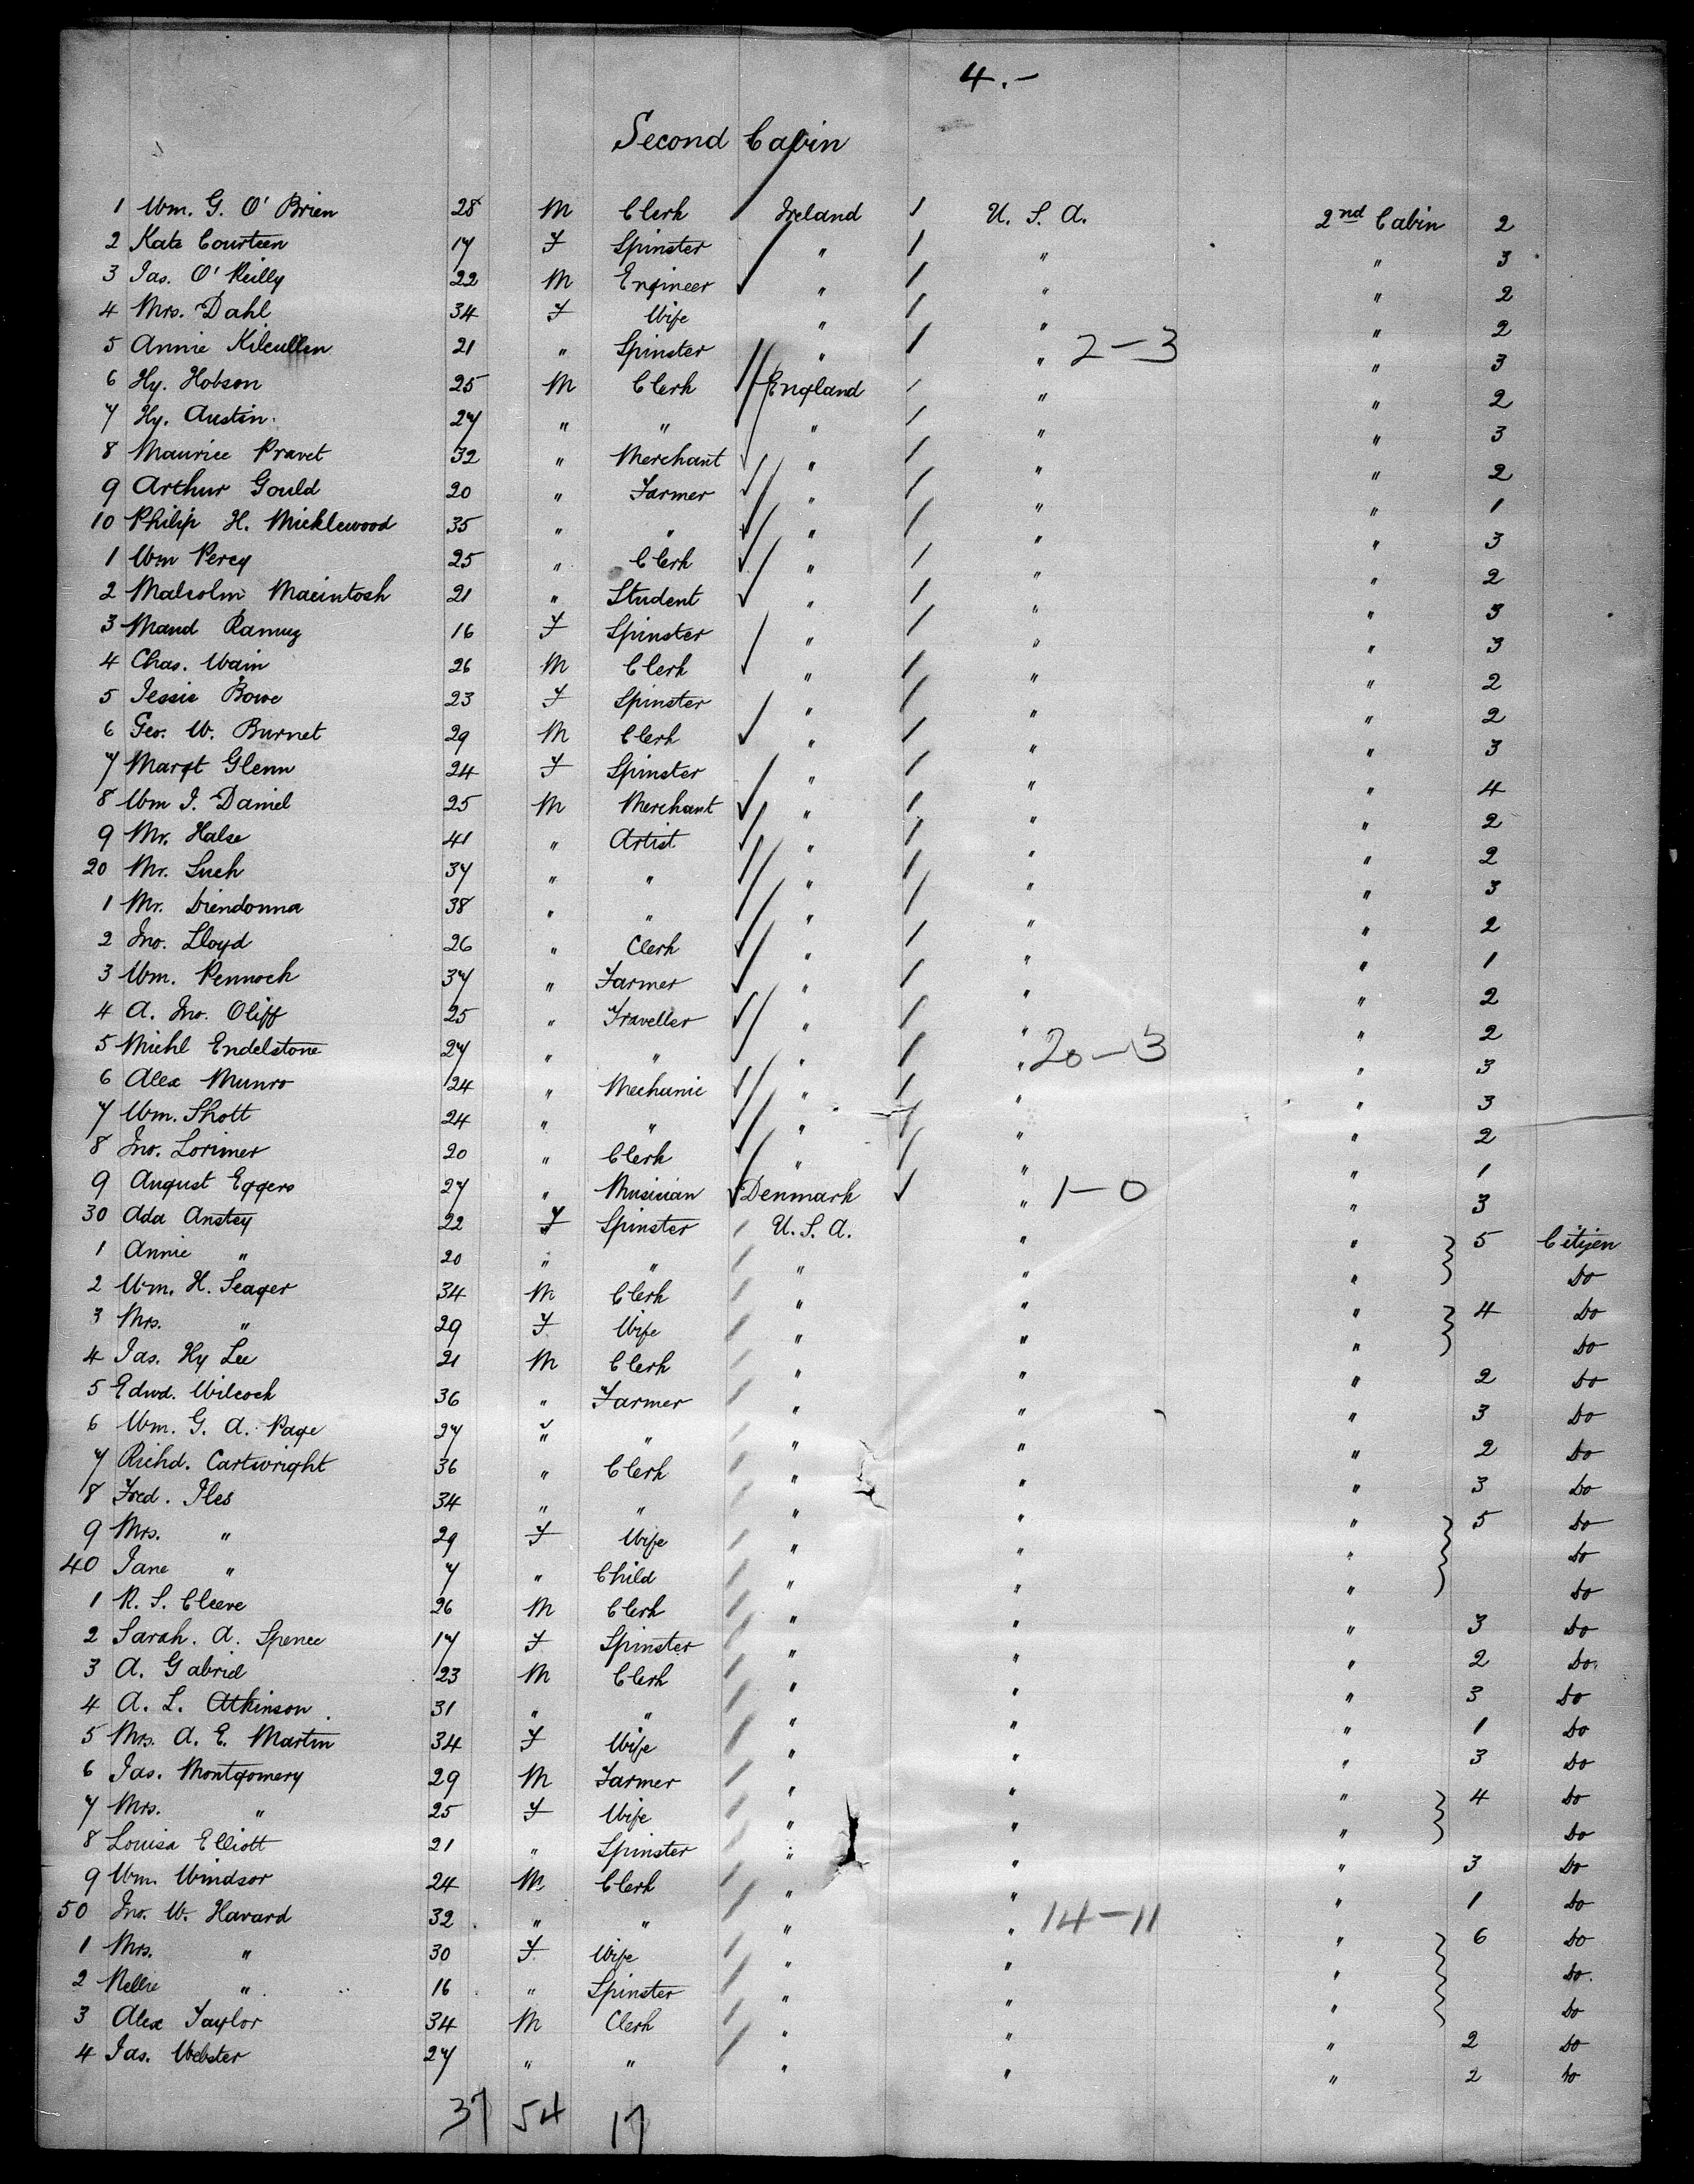 4.-
Second Cabin
1 Wm. G. O'Brien 28 M Clerk Ireland 1 U.S.A. 2nd Cabin 2
2 Kate Courteen 17 F Spinster " 1 " " 3
3 Jas. O'Reilly 22 M Engineer " 1 " " 2
4 Mrs. Dahl 34 F Wife " 1 " " 2
5 Annie Kilcullen 21 " Spinster " 1 " 2-3 " 3
6 Hy. Hobson 25 M Clerk England 1 " " 2
7 Hy. Austin 27 " " " 1 " " 3
8 Maurice Pravet 32 " Merchant " 1 " " 2
9 Arthur Gould 20 " Farmer " 1 " " 1
10 Philip H. Micklewood 35 " " " 1 " " 3
1 Wm Percy 25 " Clerk " 1 " " 2
2 Malcolm Macintosh 21 " Student " 1 " " 3
3 Maud Ramug 16 F Spinster " 1 " " 3
4 Chas. Wain 26 M Clerk " 1 " " 2
5 Jessie Bowe 23 F Spinster " 1 " " 2
6 Geo. W. Burnet 29 M Clerk " 1 " " 3
7 Margt Glenn 24 F Spinster " 1 " " 4
8 Wm J. Daniel 25 M Merchant " 1 " " 2
9 Mr. Halse 41 " Artist " 1 " " 2
20 Mr. Such 37 " " " 1 " " 3
1 Mr. Diendonna 38 " " " 1 " " 2
2 Jno. Lloyd 26 " Clerk " 1 " " 1
3 Wm. Pennock 37 " Farmer " 1 " " 2
4 A. Jno. Oliff 25 " Traveller " 1 " " 2
5 Michl Endelstone 27 " " " 1 " 20-13 " 3
6 Alex Munro 24 " Mechanic " 1 " " 3
7 Wm. Shott 24 " " " 1 " " 2
8 Jno. Lorimer 20 " Clerk " 1 " " 1
9 August Eggers 27 " Musician Denmark " 1-0 " 3
30 Ada Anstey 22 F Spinster U.S.A. " " 5 Citizen
1 Annie " 20 " " " " " Do
2 Wm. H. Seager 34 M Clerk " " " 4 Do
3 Mrs. " 29 F Wife " " " Do
4 Jas. Hy Lee 21 M Clerk " " " 2 Do
5 Edwd. Wilcock 36 " Farmer " " " 3 Do
6 Wm. G. A. Page 27 " " " " " 2 Do
7 Richd. Cartwright 36 " Clerk " " " 3 Do
8 Fred. Iles 34 " " " " " 5 Do
9 Mrs. " 29 F Wife " " " Do
40 Jane " 7 " Child " " " Do
1 R. S. Cleeve 26 M Clerk " " " 3 Do
2 Sarah. A. Spence 17 F Spinster " " " 2 Do.
3 A. Gabriel 23 M Clerk " " " 3 Do
4 A. L. Atkinson 31 " " " " " 1 Do
5 Mrs. A. E. Martin 34 F Wife " " " 3 Do
6 Jas. Montgomery 29 M Farmer " " " 4 Do
7 Mrs. " 25 F Wife " " " Do
8 Louisa Elliott 21 " Spinster " " " 3 Do
9 Wm. Windsor 24 M Clerk " " " 1 Do
50 Jno. W. Havard 32 " " " " 14-11 " 6 Do
1 Mrs. " 30 F Wife " " " Do.
2 Nellie " 16 " Spinster " " " Do
3 Alex Taylor 34 M Clerk " " " 2 Do
4 Jas. Webster 27 " " " " " 2 Do
37 54 17